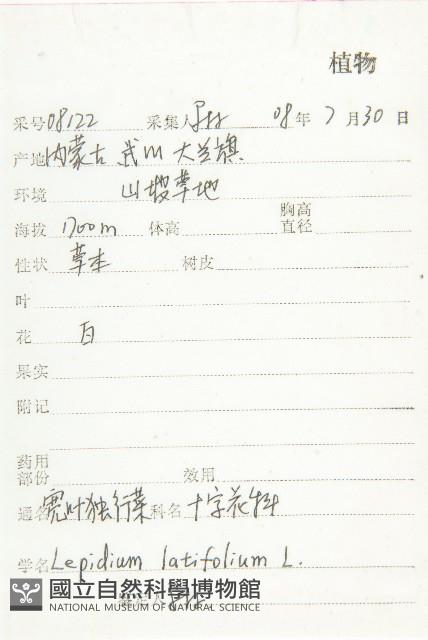 植物
采号 08122 采集人 08年 7月 30日
产地 内蒙古 武川 大兰旗
环境 山坡草地
海拔 1700m 体高 胸高直径
性状 草本 树皮
叶
花 白
果实
附记
药用部份 效用
通名 宽叶独行菜 科名 十字花科
学名 Lepidium latifolium L.
國立自然科學博物館
NATIONAL MUSEUM OF NATURAL SCIENCE